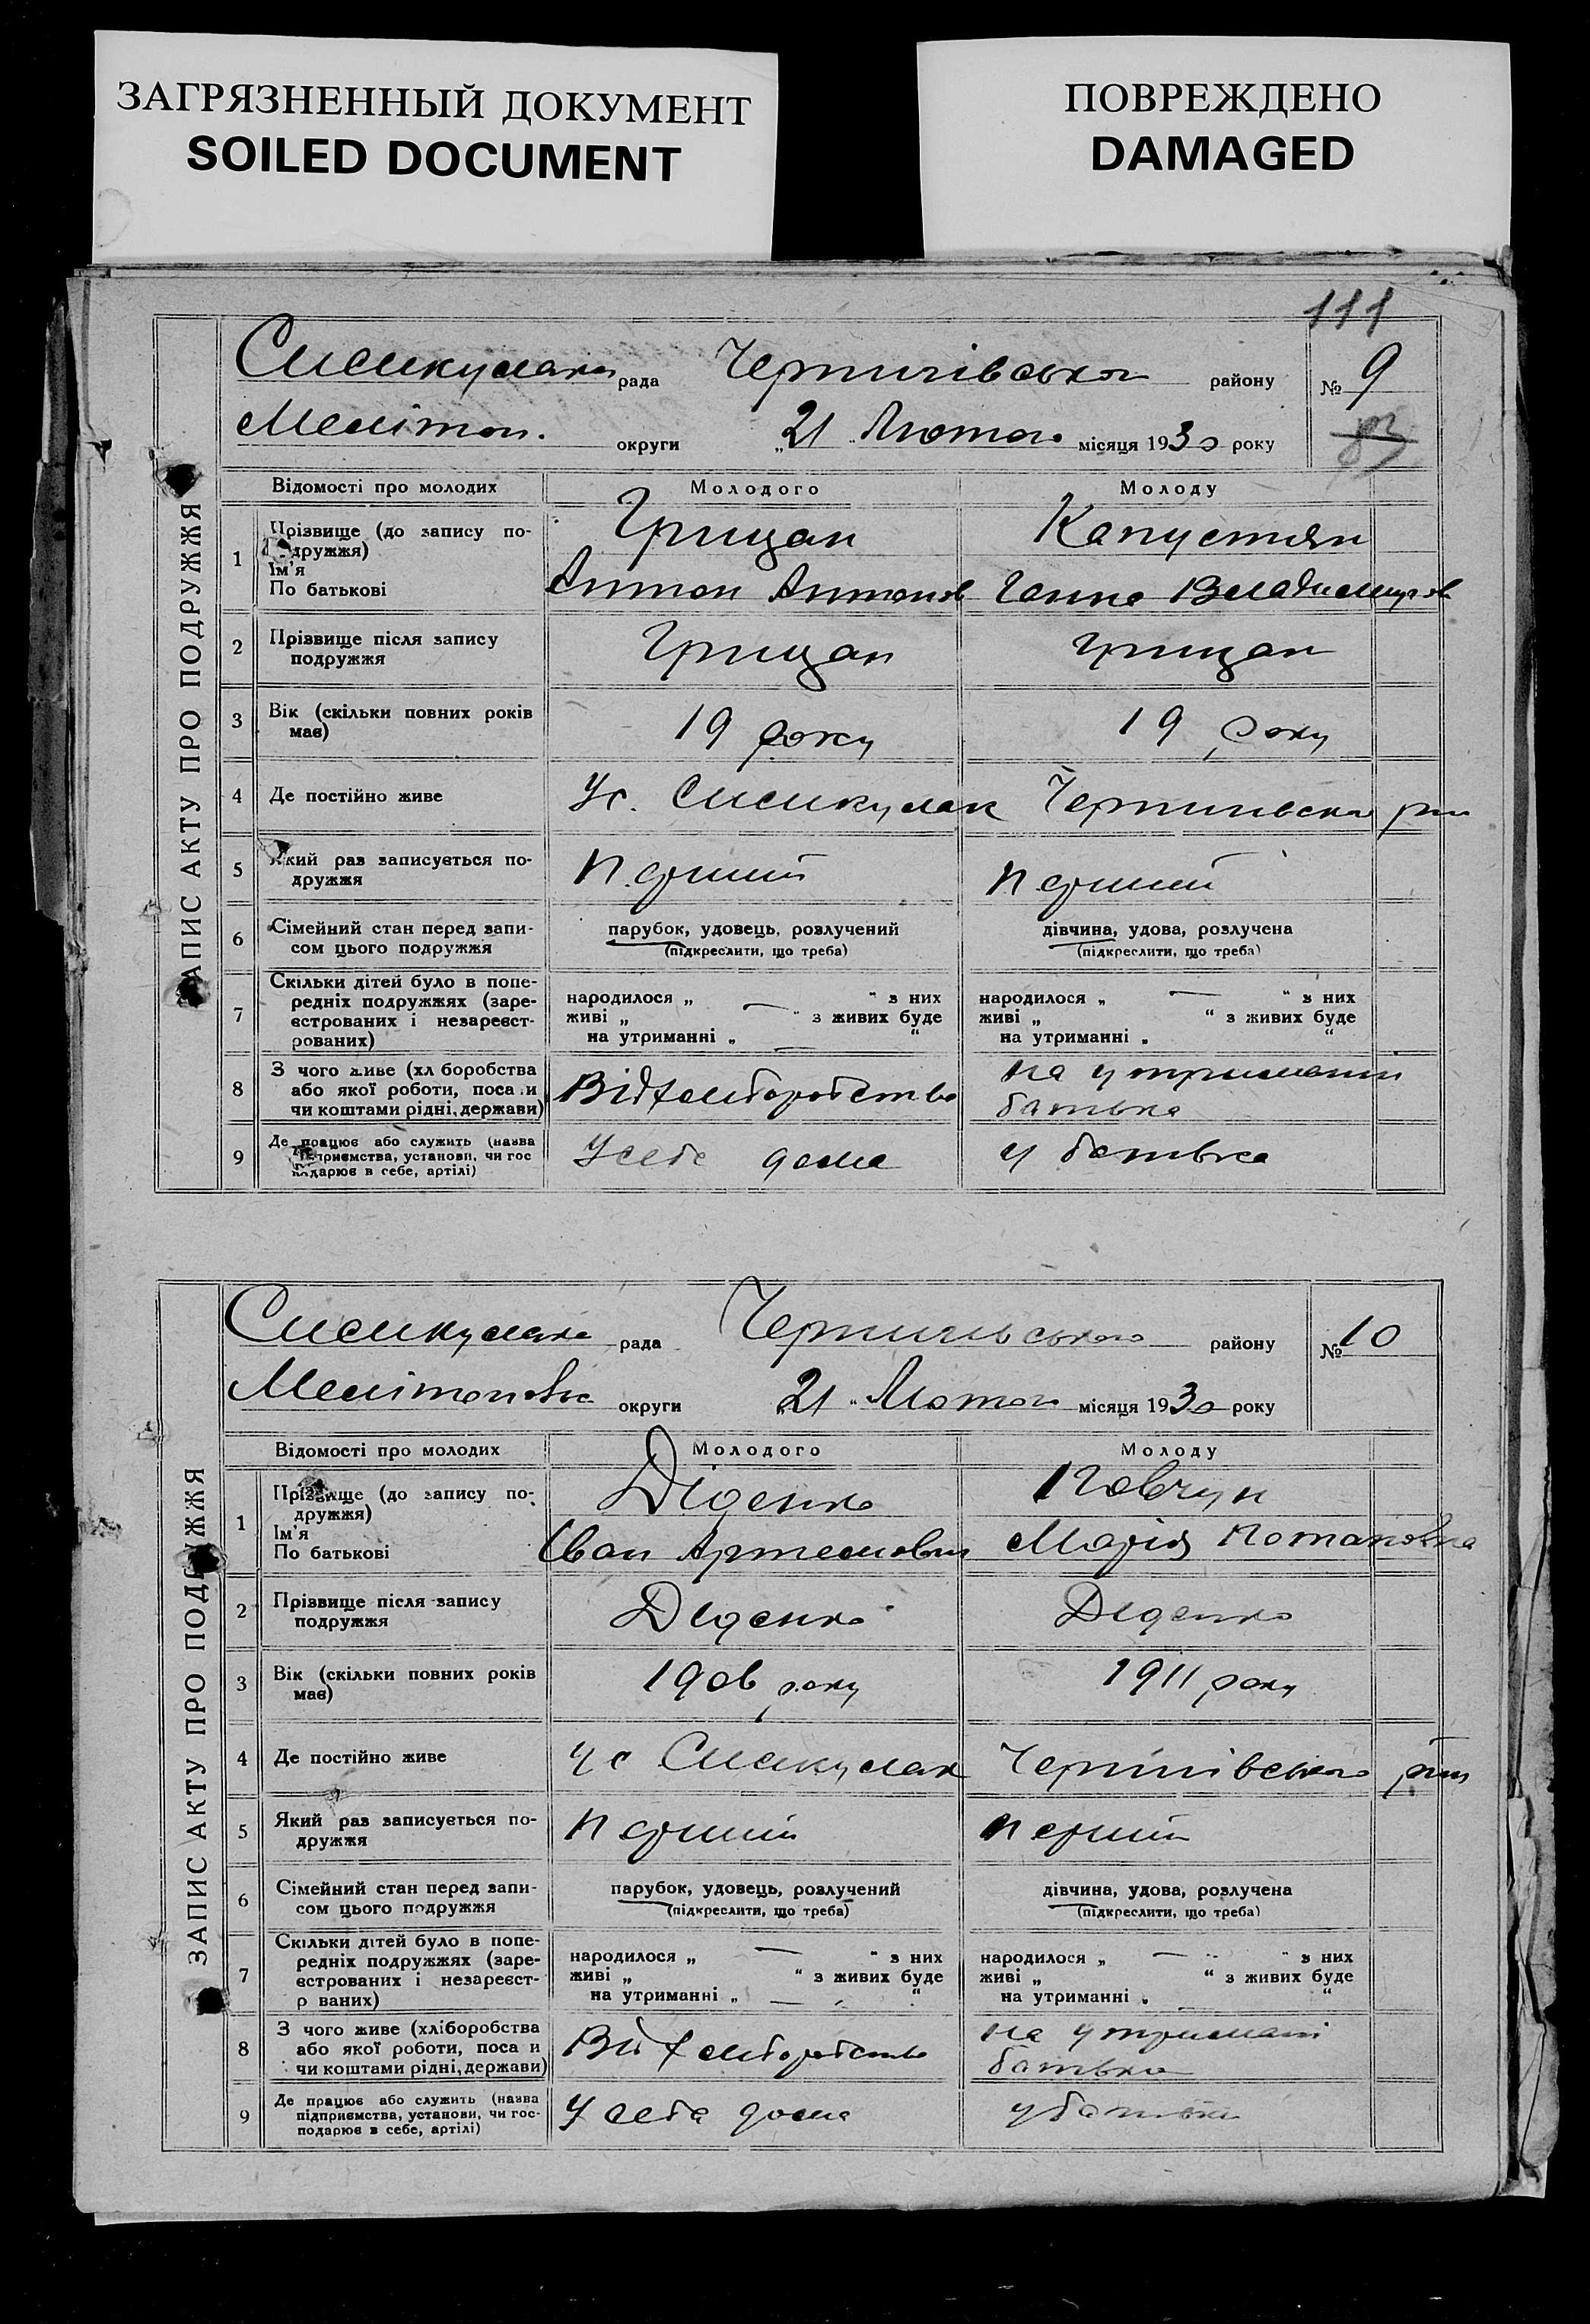 ЗАГРЯЗНЕННЫЙ ДОКУМЕНТ
SOILED DOCUMENT
ПОВРЕЖДЕНО
DAMAGED
111
ЗАПИС АКТУ ПРО ПОДРУЖЖЯ
Сисикулака рада Чернигівського району № 9
Мелітоп. округи „21“ Лютого місяця 1930 року
Відомості про молодих Молодого Молоду
1 Прізвище (до запису по-
дружжя) Грицан Капустян
Ім'я
По батькові Антон Антонов Ганна Владимиров
2 Прізвище після запису
подружжя Грицан Грицан
3 Вік (скільки повних років
має) 19 року 19 року
4 Де постійно живе Ус. Сисикулак Чернигівська рн
5 Який раз записується по-
дружжя перший перший
6 Сімейний стан перед запи-
сом цього подружжя
парубок, удовець, розлучений
(підкреслити, що треба)
дівчина, удова, розлучена
(підкреслити, що треба)
7 Скільки дітей було в попе-
редніх подружжях (заре-
єстрованих і незареєст-
рованих)
народилося „ — “ з них
живі „ “ з живих буде
на утриманні „ — “
народилося „ — “ з них
живі „ “ з живих буде
на утриманні „ “
8 З чого живе (хл боробства
або якої роботи, поса и
чи коштами рідні, держави)
Від хліборобства
на утриманни
батька
9 Де працює або служить (назва
підприємства, установи, чи гос
подарює в себе, артілі)
У себе дома у батька
ЗАПИС АКТУ ПРО ПОДРУЖЖЯ
Сисикулака рада Чернигівського району № 10
Мелітоповьс округи „21“ Лютого місяця 1930 року
Відомості про молодих Молодого Молоду
1 Прізвище (до запису по-
дружжя) Діденко Ковчун
Ім'я
По батькові Іван Артемович Марія Потаповна
2 Прізвище після запису
подружжя Діденко Діденко
3 Вік (скільки повних років
має) 1906 року 1911 року
4 Де постійно живе у с Сисикулак Чернигівського рн
5 Який раз записується по-
дружжя перший перший
6 Сімейний стан перед запи-
сом цього подружжя
парубок, удовець, розлучений
(підкреслити, що треба)
дівчина, удова, розлучена
(підкреслити, що треба)
7 Скільки дітей було в попе-
редніх подружжях (заре-
єстрованих і незареєст-
р ваних)
народилося „ — “ з них
живі „ “ з живих буде
на утриманні „ — “
народилося „ — “ з них
живі „ “ з живих буде
на утриманні „ — “
8 З чого живе (хліборобства
або якої роботи, поса и
чи коштами рідні, держави)
Від хліборобства
на утримані
батька
9 Де працює або служить (назва
підприємства, установи, чи гос-
подарює в себе, артілі)
У себа дома у батьки